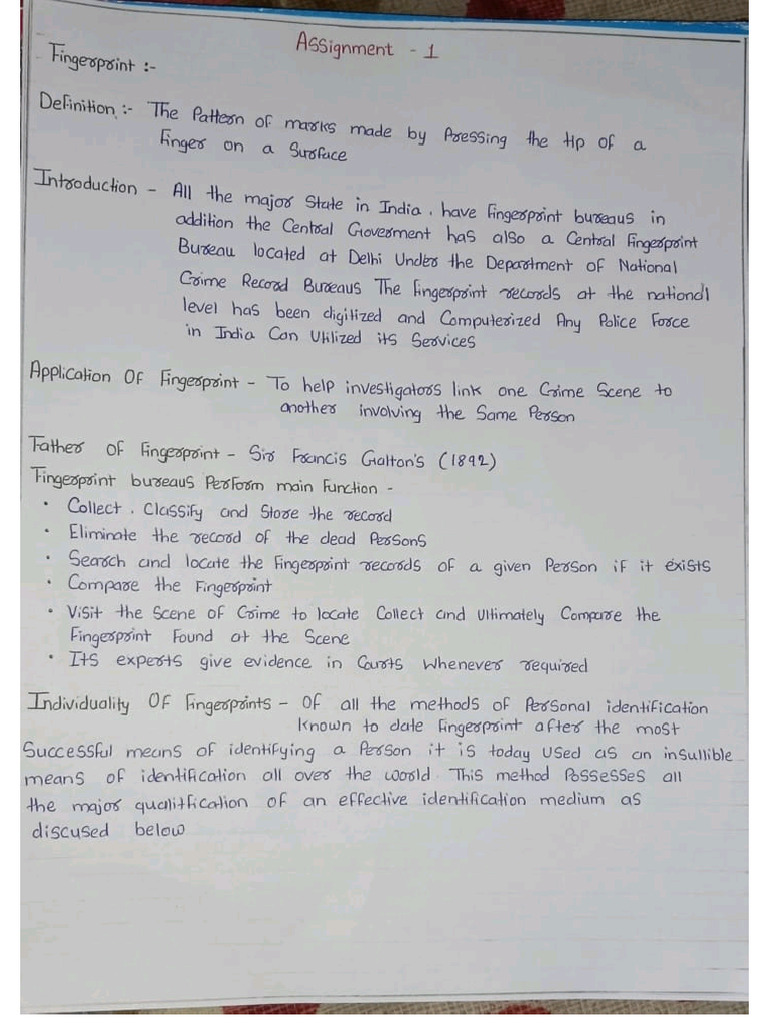 Assignment - 1
Fingerprint :-
Definition :- The Pattern of marks made by Pressing the tip of a
Finger on a Surface
Introduction - All the major State in India . have Fingerprint bureaus in
addition the Central Goverment has also a Central Fingerprint
Bureau located at Delhi Under the Department of National
Crime Record Bureaus The Fingerprint records at the national
level has been digitized and Computerized Any Police Force
in India Can Utilized its Services
Application Of Fingerprint - To help investigators link one Crime Scene to
another involving the Same Person
Father OF Fingerprint - Sir Francis Galton's (1892)
Fingerprint bureaus Perform main Function -
• Collect . Classify and Store the record
• Eliminate the record of the dead Persons
• Search and locate the Fingerprint records of a given Person if it exists
• Compare the Fingerprint
• Visit the Scene of Crime to locate Collect and Ultimately Compare the
Fingerprint Found at the Scene
• Its experts give evidence in Courts Whenever required
Individuality OF Fingerprints - OF all the methods of Personal identification
known to date Fingerprint after the most
Successful means of identifying a Person it is today Used as an insullible
means of identification all over the world. This method Possesses all
the major qualitfication of an effective identification medium as
discused below